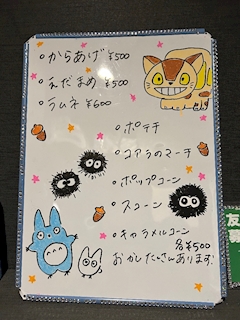 ・からあげ ¥500
・えだまめ ¥500
・ラムネ ¥600
・ポテチ
・コアラのマーチ
・ポップコーン
・スコーン
・キャラメルコーン
各¥500
おかしたくさんあります!
友